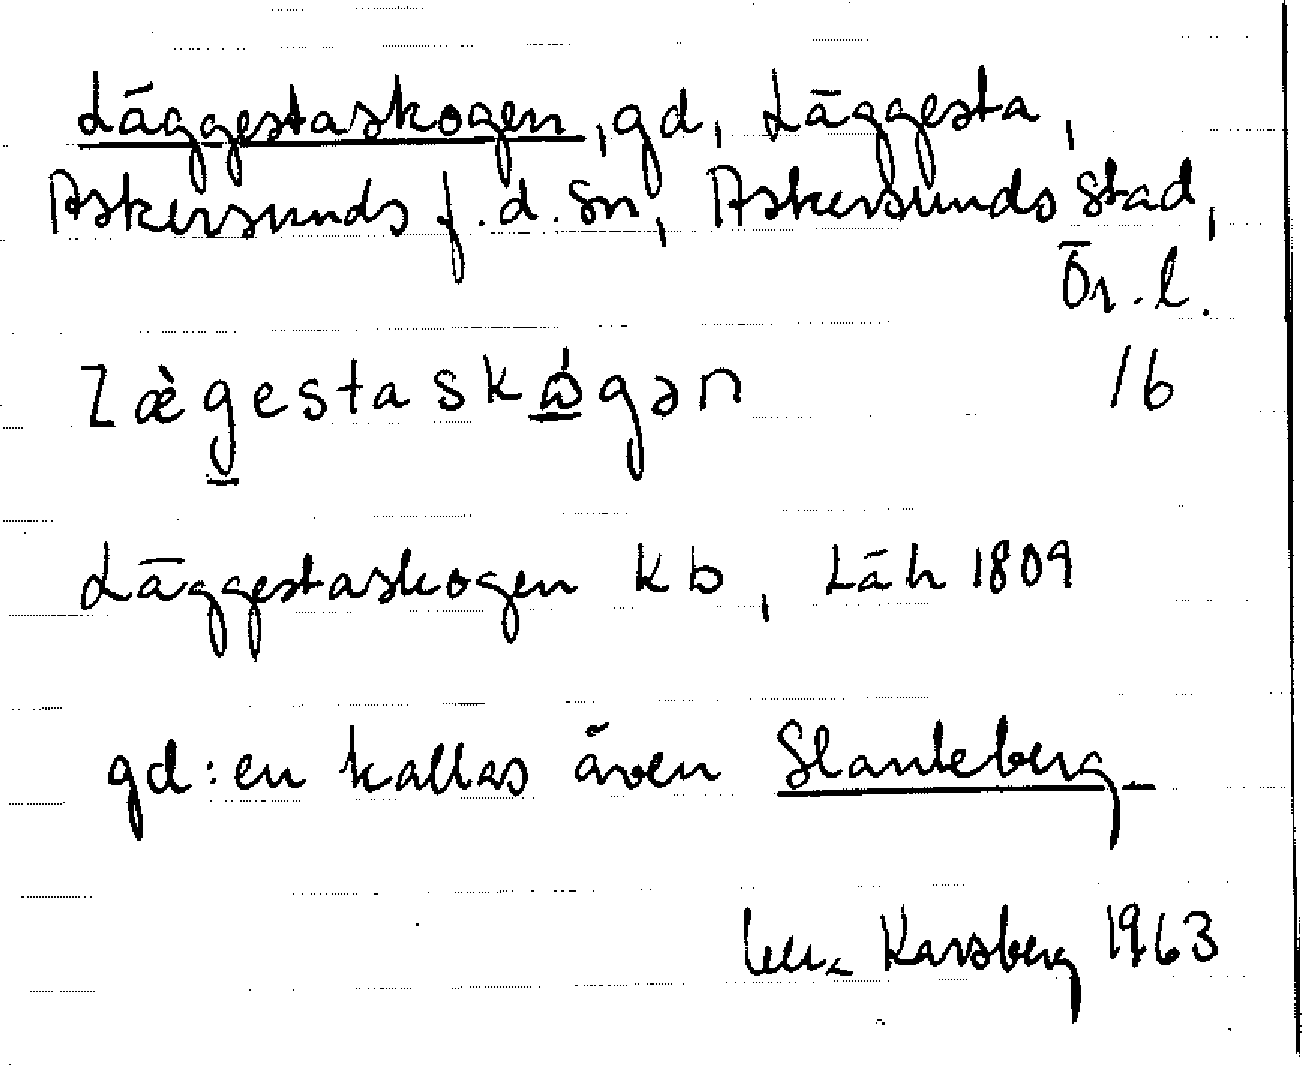 Läggestaskogen, gd, Läggesta,
Askersunds f.d. sn, Askersunds stad,
Ör. l.
lægestaskɷ́gən 16
Läggestaskogen kb, Läh 1809
gd:en kallas även Slanteberg
Karsberg 1963